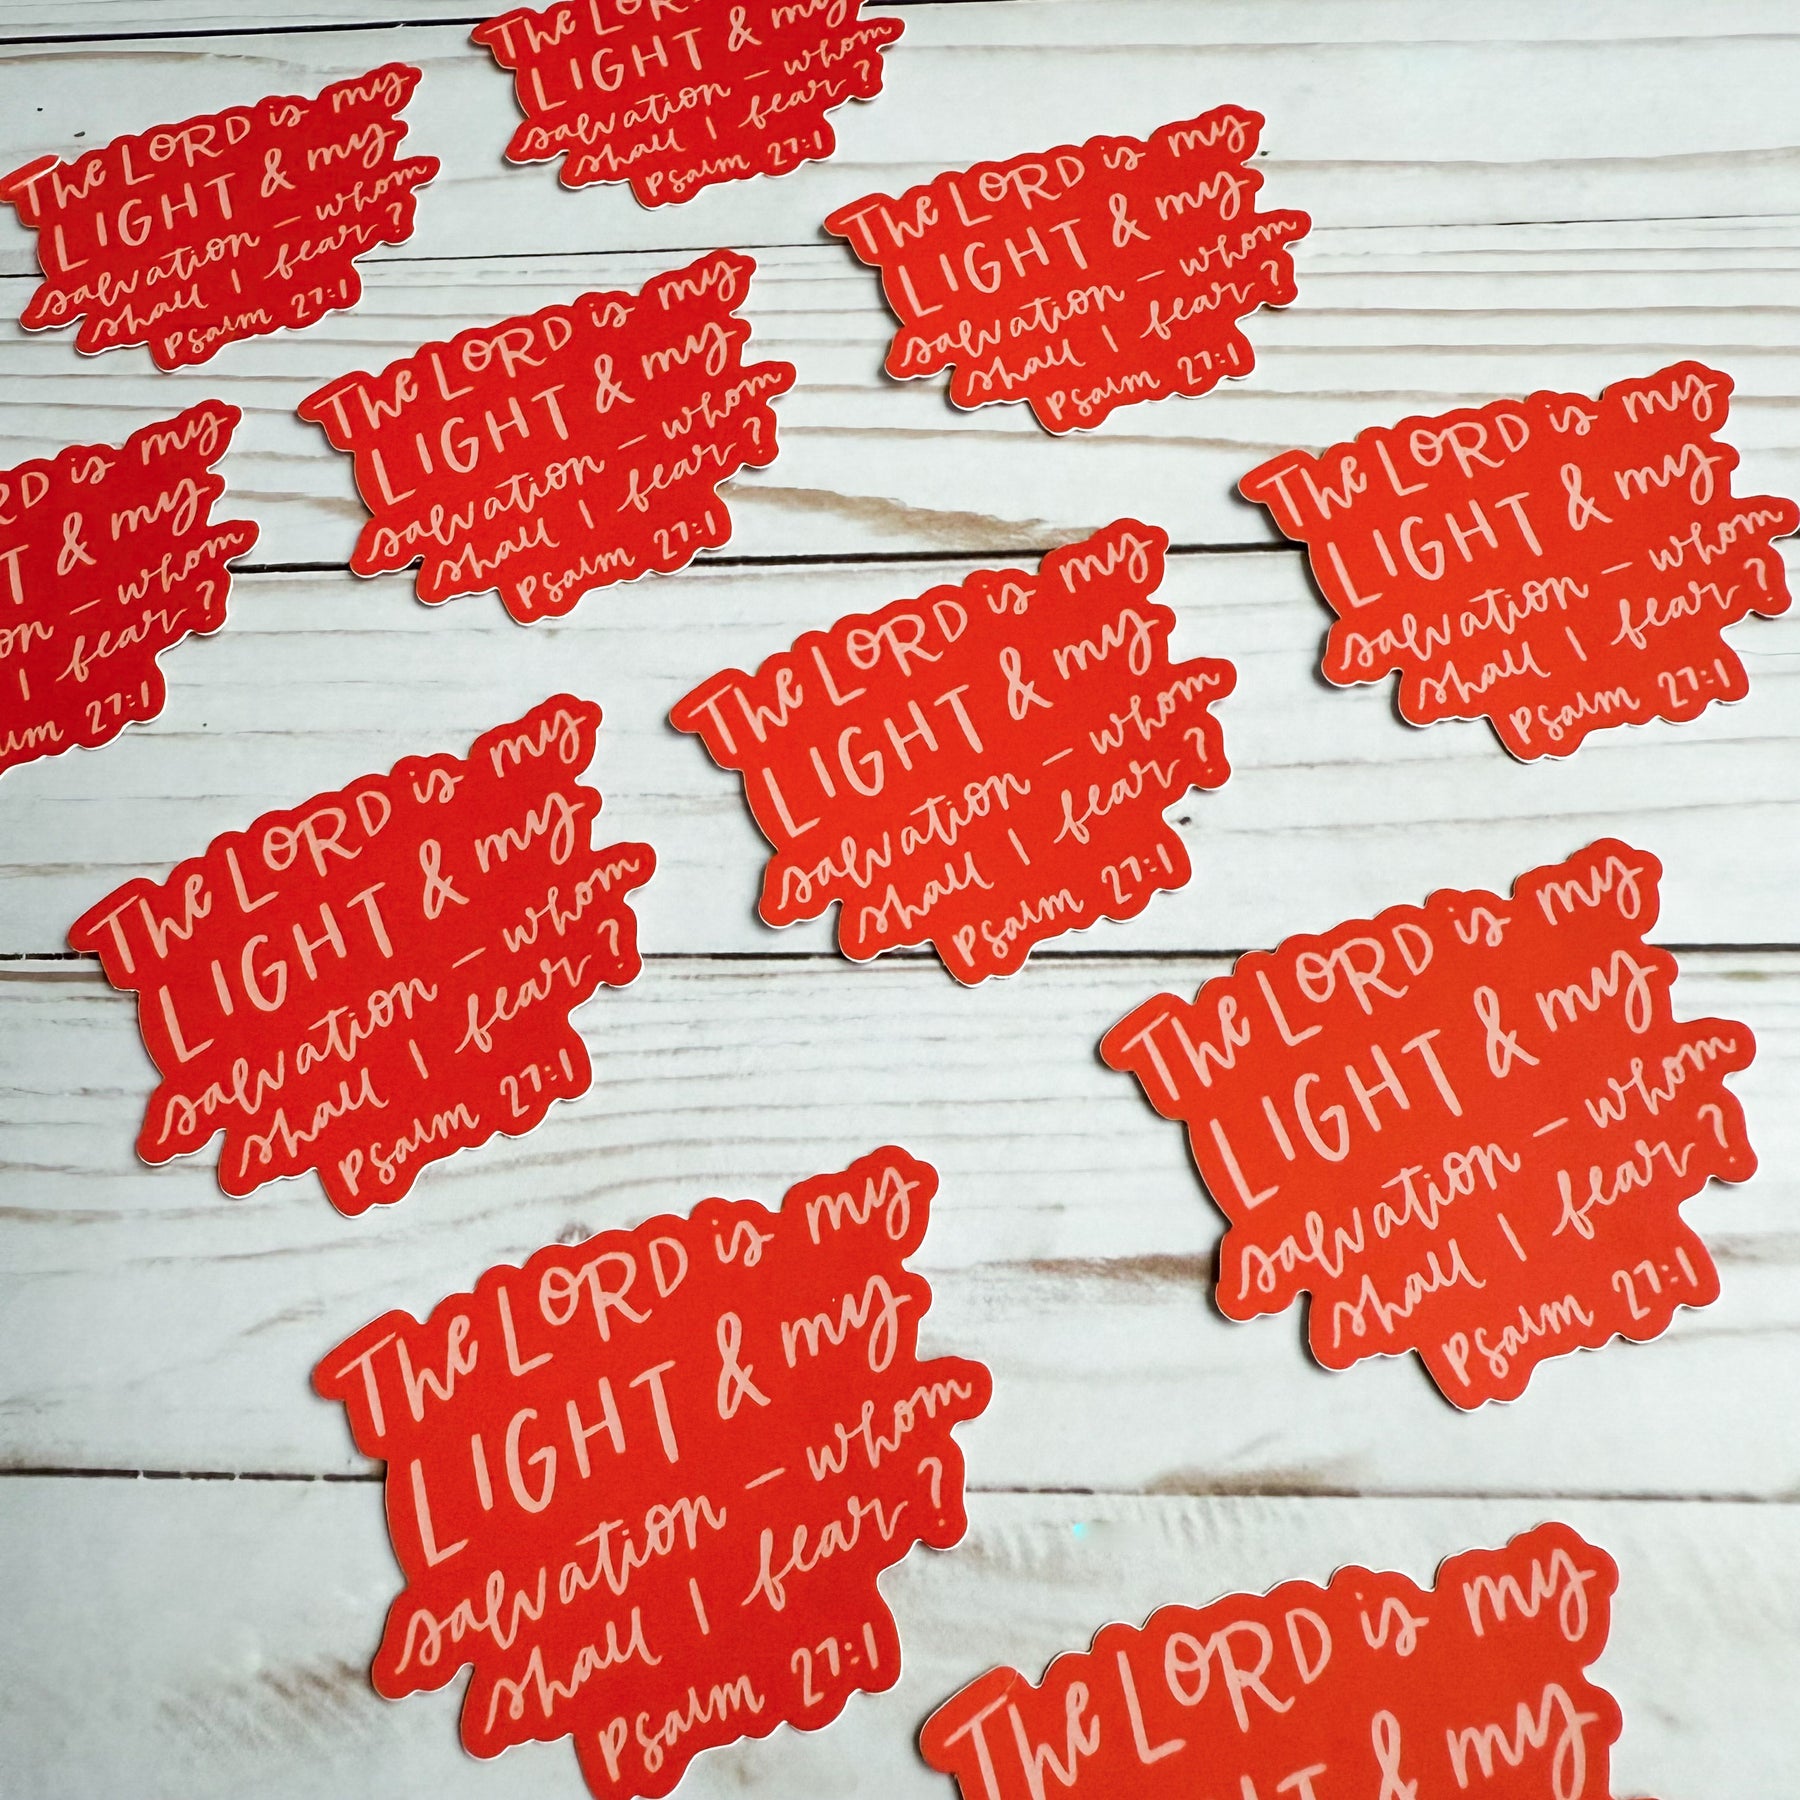 The LOR
LIGHT & my
salvation – whom
shall I fear?
Psalm 27:1
The LORD is my
LIGHT & my
salvation – whom
shall I fear?
Psalm 27:1
The LORD is my
LIGHT & my
salvation – whom
shall I fear?
Psalm 27:1
The LORD is my
LIGHT & my
salvation – whom
shall I fear?
Psalm 27:1
RD is my
T & my
on – whom
I fear?
um 27:1
The LORD is my
LIGHT & my
salvation – whom
shall I fear?
Psalm 27:1
The LORD is my
LIGHT & my
salvation – whom
shall I fear?
Psalm 27:1
The LORD is my
LIGHT & my
salvation – whom
shall I fear?
Psalm 27:1
The LORD is my
LIGHT & my
salvation – whom
shall I fear?
Psalm 27:1
The LORD is my
LIGHT & my
salvation – whom
shall I fear?
Psalm 27:1
The LORD is my
& my